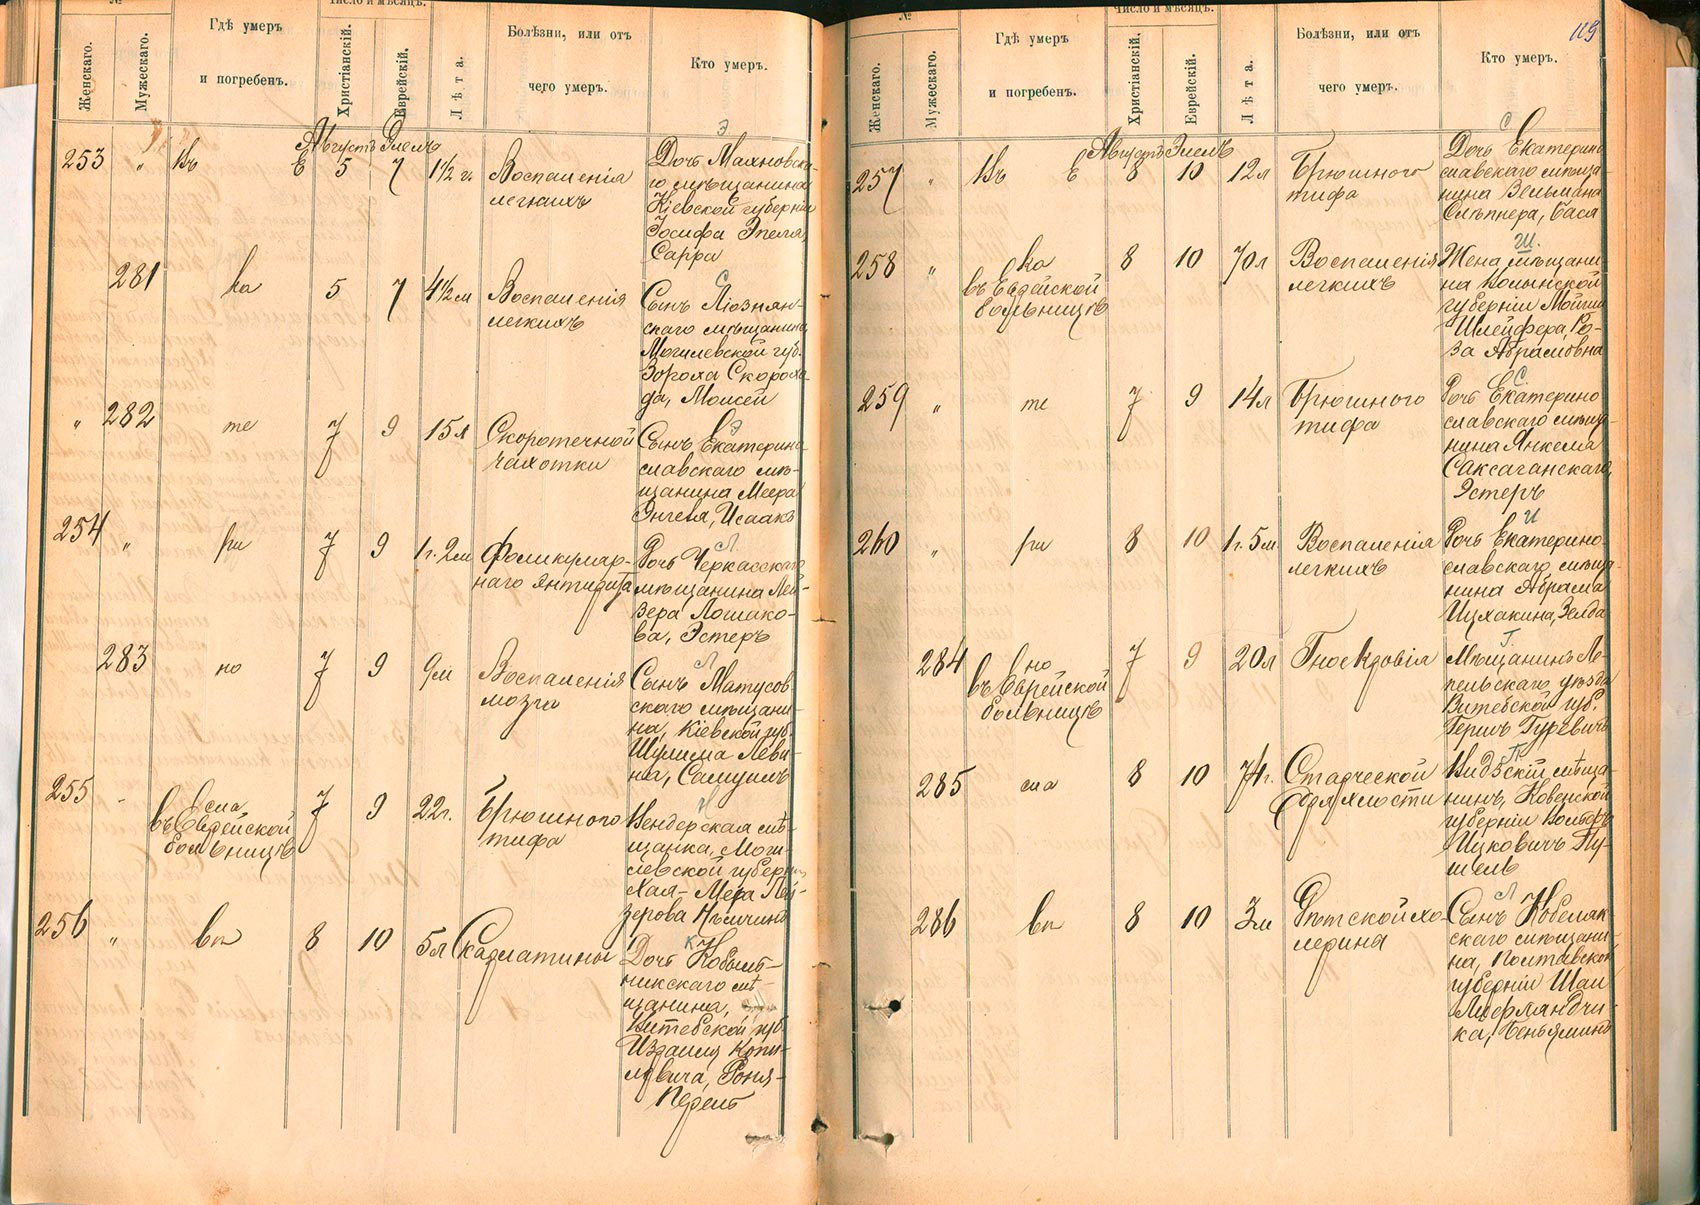 №
Число и мѣсяцъ.
Женскаго.
Мужескаго.
Гдѣ умеръ
и погребенъ.
Христіанскій.
Еврейскій.
Лѣта.
Болѣзни, или отъ
чего умеръ.
Кто умеръ.
Августъ Элелъ
Э
253 " Въ Е 5 7 1½ г.
Воспаленія
легкихъ
Дочь Махновска-
го мѣщанина
Кіевской губерніи
Іосифа Эпеля,
Сарра
281 ка 5 7 4½ м
Воспаленія
легкихъ
С
Сынъ Люзнян-
скаго мѣщанина
Могилевской губ.
Зороха Скорохо-
да, Моисей
" 282 те 7 9 15 л
Скоротечной
чахотки
Э
Сынъ Екатерино
славскаго мѣ-
щанина Меера
Энгеля, Исаакъ
254 " ри 7 9 1 г. 2 м
Фоликуляр-
наго
Л
Дочь Черкасскаго
мѣщанина Лей-
зера Лошако-
ва, Эстеръ
283 но 7 9 9 м
Воспаленія
мозга
Л
Сынъ Матусов
скаго мѣщани-
на, Кіевской губ.
Шулима Леви-
на, Самуилъ
255 сла
въ Еврейской
больницѣ
7 9 22 г.
Брюшного
тифа
мѣ-
щанка, Моги-
левской губерніи
Хая-Мера Лей-
зерова
256 " вп 8 10 5 л
Скарлатины
К
Дочь Кобыль-
никскаго мѣ-
щанина,
Витебской губ.
Израиля Копи-
ловича, Роня-
Перель
119
№
Число и мѣсяцъ.
Женскаго.
Мужескаго.
Гдѣ умеръ
и погребенъ.
Христіанскій.
Еврейскій.
Лѣта.
Болѣзни, или отъ
чего умеръ.
Кто умеръ.
Августъ Элелъ
С
257 " Въ Е 8 10 12 л
Брюшного
тифа
Дочь Екатерино
славскаго мѣща-
нина Зельмана
Слѣпнера, Бася
258 " ка
въ Еврейской
больницѣ
8 10 70 л
Воспаленія
легкихъ
Ш.
Жена мѣщани
на Волынской
губерніи Мойши
Шлейфера, Ро-
за Абрамовна
259 " те 7 9 14 л
Брюшного
тифа
С
Дочь Екатерино
славскаго мѣща-
нина Янкеля
Саксаганскаго,
Эстеръ
260 " ри 8 10 1 г. 5 м.
Воспаленія
легкихъ
И
Дочь Екатерино-
славскаго мѣща-
нина Абрама
Ицхакина, Зелда
284 но
въ Еврейской
больницѣ
7 9 20 л
Гноекровія
Г
Мѣщанинъ Ле-
пельскаго уѣзда
Витебской губ.
Гершъ Гуревичъ
285 сла 8 10 74 г.
Старческой
дряхлости
П
Видзскій мѣща-
нинъ, Ковенской
губерніи Вольфъ
Ицковичъ Пу-
шель
286 вп 8 10 3 м
Дѣтской хо-
лерина
Л
Сынъ Кобеляк-
скаго мѣщани-
на, Полтавской
губерніи Шаи
Лифляндчи-
ка, Беньяминъ